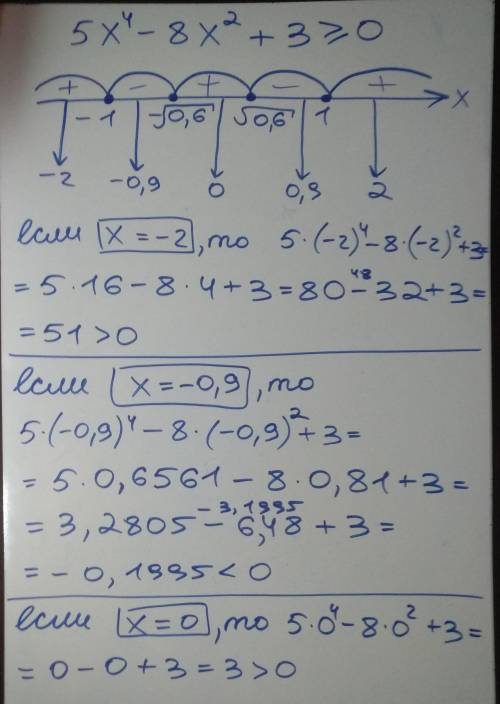 5x⁴ - 8x² + 3 ≥ 0
+ - + - + x
-1 -√0,6 √0,6 1
-2 -0,9 0 0,9 2
если x = -2, то 5·(-2)⁴ - 8·(-2)² + 3 =
= 5·16 - 8·4 + 3 = 80 - 32 + 3 =
48
= 51 > 0
если x = -0,9, то
5·(-0,9)⁴ - 8·(-0,9)² + 3 =
= 5·0,6561 - 8·0,81 + 3 =
-3,1995
= 3,2805 - 6,48 + 3 =
= -0,1995 < 0
если x = 0, то 5·0⁴ - 8·0² + 3 =
= 0 - 0 + 3 = 3 > 0